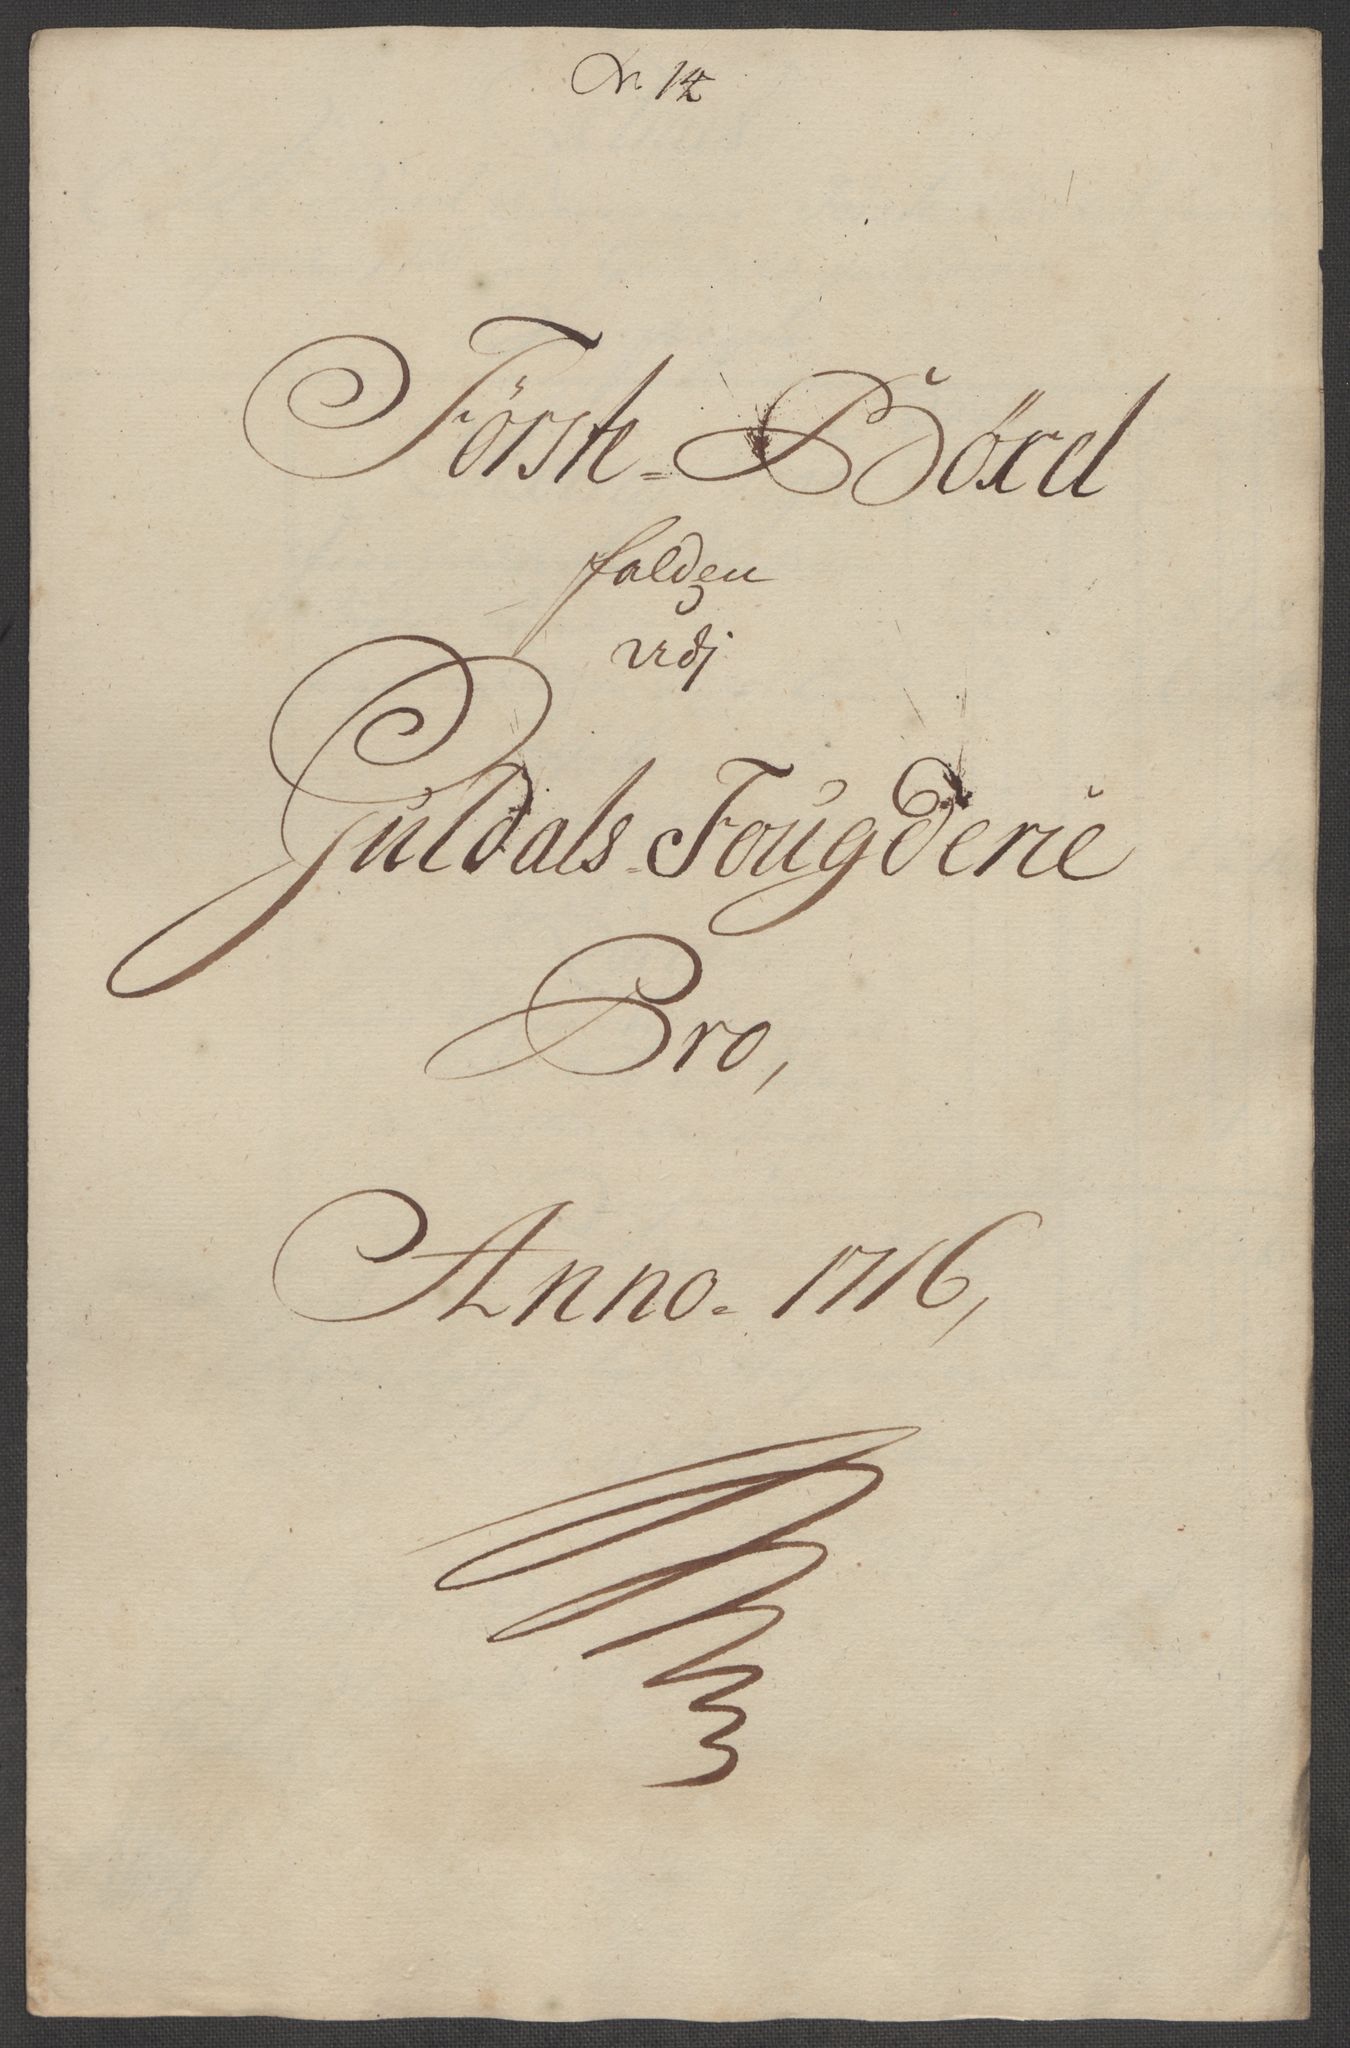 N. 14
Förste = Böxel
falden
udj
Guldals = Fougderie
Pro,
Anno = 1716,